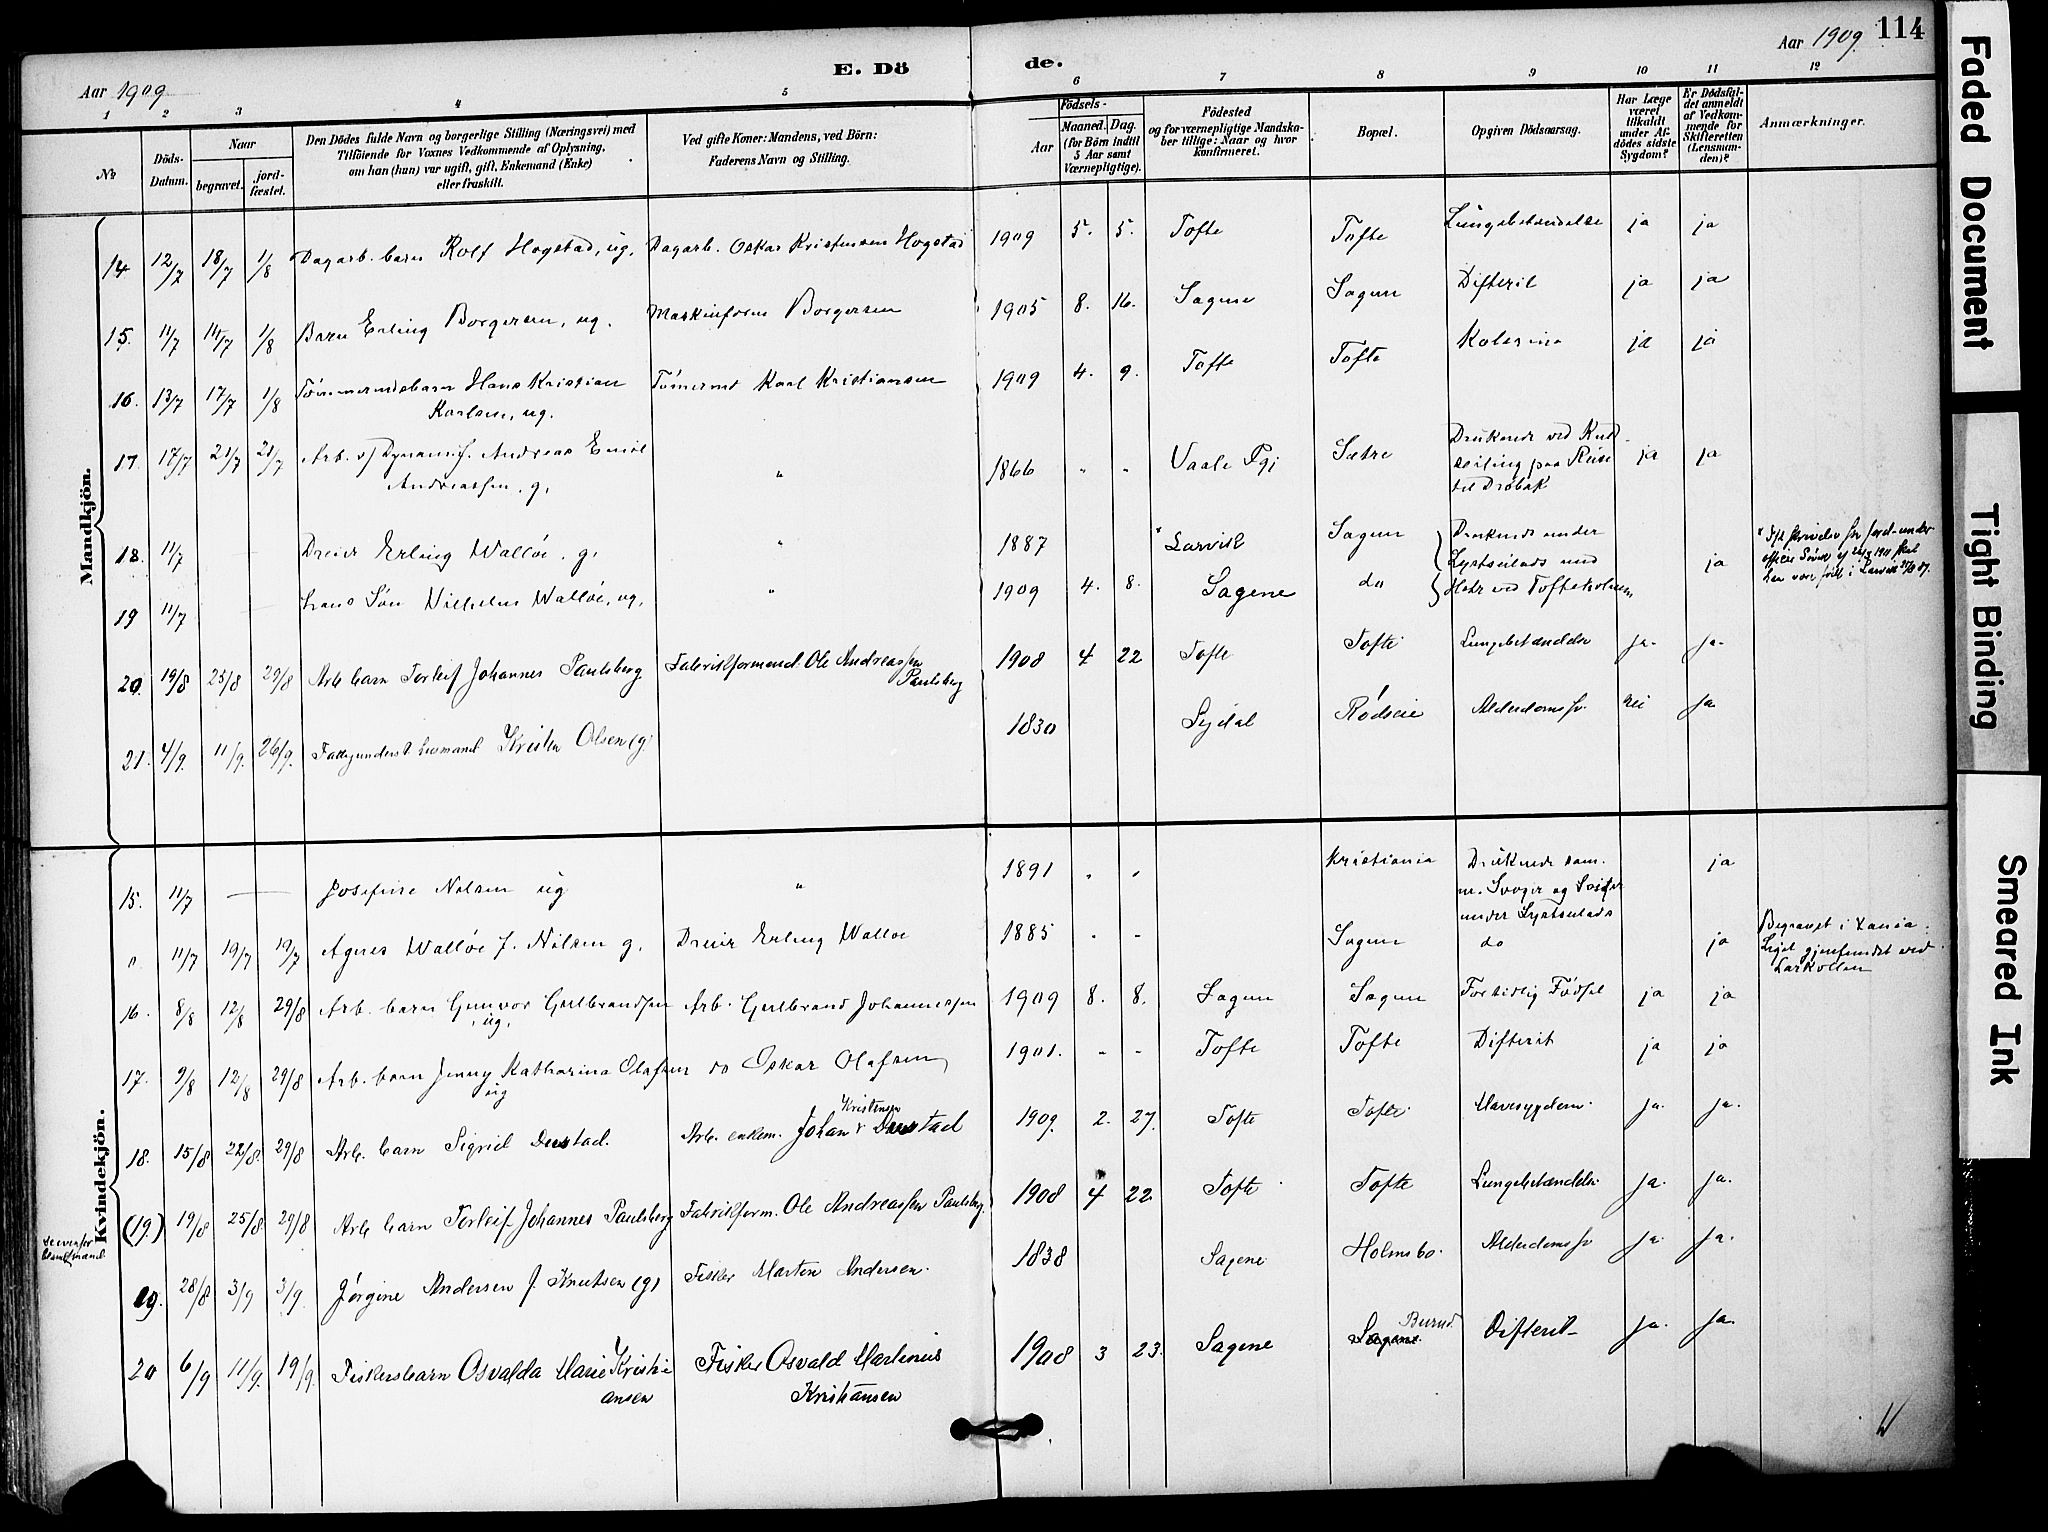 114
Aar 1909
E. Dö de.
Aar 1909
1 2 3 4 5 6 7 8 9 10 11 12
No
Döds-Datum.
Naar
begravet.
jord-fæstet.
Den Dödes fulde Navn og borgerlige Stilling (Næringsvei) med
Tilföiende for Voxnes Vedkommende af Oplysning,
om han (hun) var ugift, gift, Enkemand (Enke)
eller fraskilt.
Ved gifte Koner: Mandens, ved Börn:
Faderens Navn og Stilling.
Födsels-
Aar
Maaned. Dag.
(for Börn indtil
5 Aar samt
Værnepligtige).
Födested
og for værnepligtige Mandska-
ber tillige: Naar og hvor
konfirmeret.
Bopæl.
Opgiven Dödsaarsag.
Har Læge
været
tilkaldt
under Af-
dödes sidste
Sygdom?
Er Dödsfal-
det anmeldt
af Vedkom-
mende for
Skifteretten
(Lensman-
den)?
Anmærkninger.
Mandkjön.
14 12/7 18/7 1/8 Dagarb. barn Rolf Hogstad, ug. Dagarb. Oskar Kristensen Hogstad 1909 5. 5. Tofte Tofte Lungebetændelse ja ja
15. 11/7 14/7 1/8 Barn Erling Borgersen, ug. Maskinform Borgersen 1905 8. 16. Sagene Sagene Difterit ja ja
16. 13/7 17/7 1/8 Tømmermdsbarn Hans Kristian Tømermd Karl Kristiansen 1909 4. 9. Tofte Tofte Kolerine ja ja
Karlsen, ug.
17. 17/7 21/7 21/7 Arb. v/ Dynamf. Andreas Emil " 1866 " " Vaale Pgj Sætre Druknede ved Kuld-
Andreassen, g. seiling paa Reise ja ja
til Drøbak
18. 11/7 — — Dreier Erling Walløe, g. " 1887 * Larvik Sagene Druknede under
Lystseilads med ja
19 11/7 — — hans Søn Wilhelm Walløe, ug. " 1909 4. 8. Sagene do Hstr ved Tofteholmen
20. 19/8 25/8 29/8 Arb barn Torleif Johannes Paulsberg Fabrikformand. Ole Andreassen 1908 4 22 Tofte Tofte Lungebetændelse ja. ja.
Paulsberg
21. 4/9. 11/9. 26/9. Fattigunderst. Kristen Olsen (g) 1830 Rødseie Alderdomssv. nei ja
Kvindekjön.
15. 11/7 — — Josefine Nilsen ug " 1891 " " Kristiania Druknede sam-
m. Svoger og Søster ja
under Lystseilads
" 11/7 19/7 19/7 Agnes Walløe f. Nilsen g. Dreier Erling Walløe 1885 - - Sagene do ja Begravet i
Liget gjenfundet ved
Larkollen
16. 8/8 12/8 29/8 Arb. barn Gunvor Gulbrandsen Arb. Gulbrand Johannessen 1909 8. 8. Sagene Sagene For tidlig Fødsel ja ja
ug.
17. 9/8 12/8 29/8 Arb. barn Jenny Katharina Olafsen do Oskar Olafsen 1901. - - Tofte Tofte Difterit ja ja
ug
18. 15/8 22/8. 29/8 Arb. barn Sigrid Duestad. Arb. enkem. Johan Kristensen Duestad 1909. 2. 27. Tofte Tofte. Mavesygdom. ja. ja.
(19.) 19/8 25/8 29/8 Arb barn Torleif Johannes Paulsberg Fabrikform. Ole Andreassen Paulsberg 1908 4 22 Tofte Tofte Lungebetændelse ja. ja.
Se ovenfor
blandt mænd.
19. 28/8 3/9 3/9. Jørgine Andersen f. Knutsen (g) Fisker Morten Andersen. 1838 Sagene Holmsbo. Alderdomssv ja. ja.
20 6/9 11/9. 19/9. Fiskersbarn Osvalda Marie Kristi- Fisker Osvald Martinius 1908 3 23. Sagene Difterit ja. ja.
ansen Kristiansen
Faded Document
Tight Binding
Smeared Ink